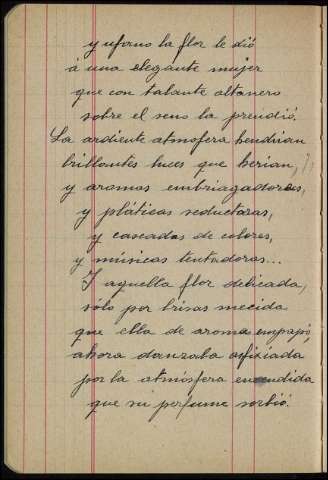 y ufano la flor le dió
á una elegante mujer
que con talante altanero
sobre el seno la prendió.
La ardiente atmosfera hendian
brillantes luces que herian,
y aromas embriagadores,
y pláticas seductoras,
y cascadas de colores,
y músicas tentadoras...
Y aquella flor delicada,
sólo por brisas mecida
que ella de aroma empapó,
ahora danzaba asfixiada
por la atmósfera encendida
que su perfume sorbió.